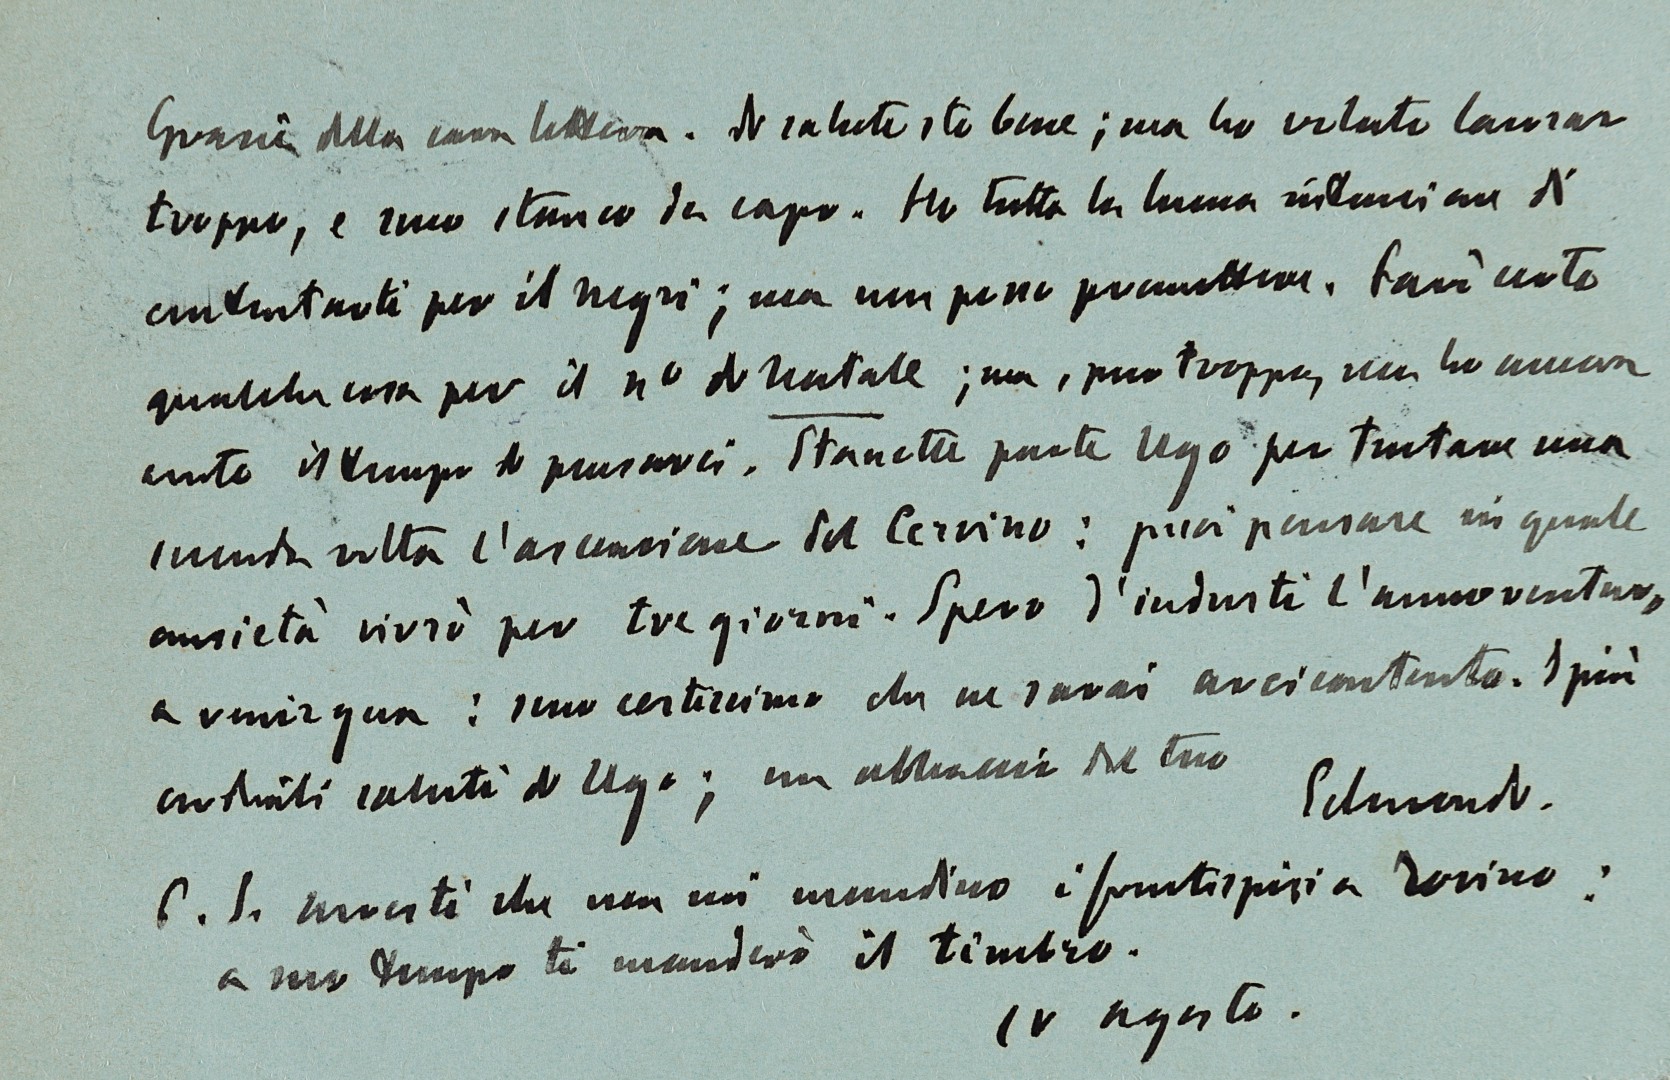 Grazie della cara lettera. Di salute sto bene; ma ho voluto lavorar
troppo, e sono stanco da capo. Ho tutta la buona intenzione di
contentarti per il Negri; ma non posso promettere. Farò certo
qualche cosa per il nº di Natale; ma, pur troppo, non ho ancora
avuto il tempo di pensarci. Stanotte parte Ugo per tentare una
seconda volta l'ascensione del Cervino: puoi pensare in quale
ansietà vivrò per tre giorni. Spero d'indurti l'anno venturo,
a venir qua: sono certissimo che ne sarai arcicontento. I più
cordiali saluti di Ugo; un abbraccio del tuo
Edmondo.
P. S. Avverti che non mi mandino i frontispizi a Torino:
a suo tempo ti manderò il timbro.
agosto.